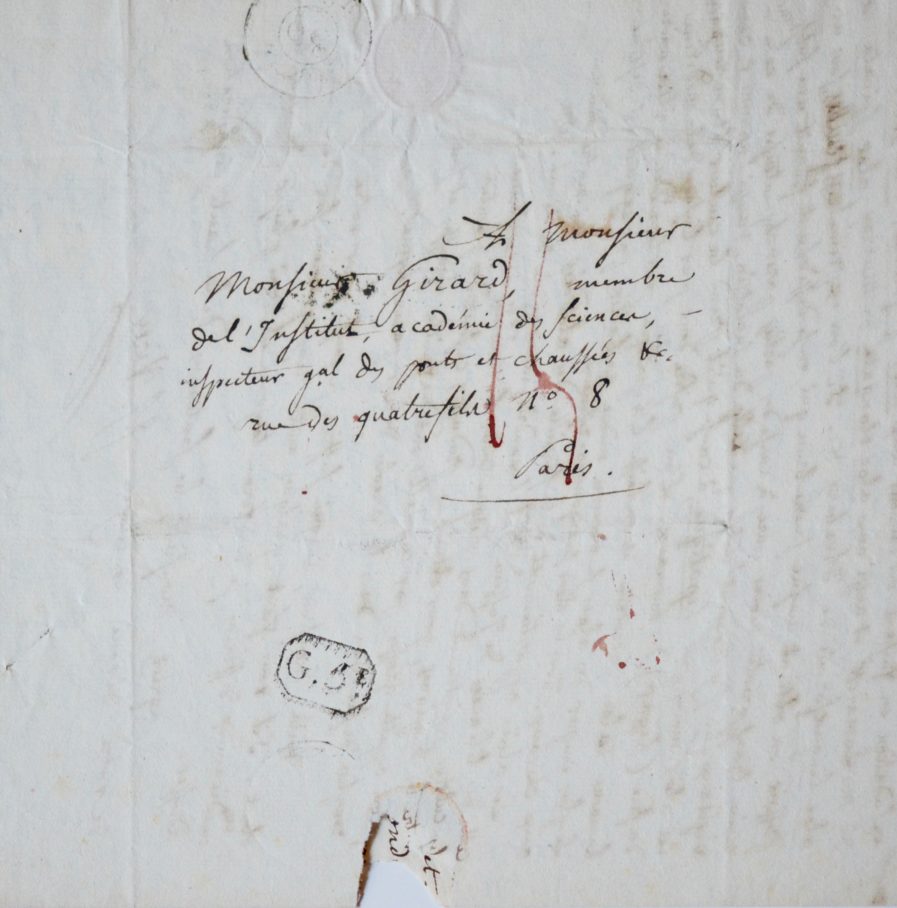 A Monsieur
Monsieur Girard, membre
de l'Institut, académie des sciences, -
inspecteur gal des ponts et chaussées &c.
rue des quatrefils n° 8
Paris.
G. 3E
et